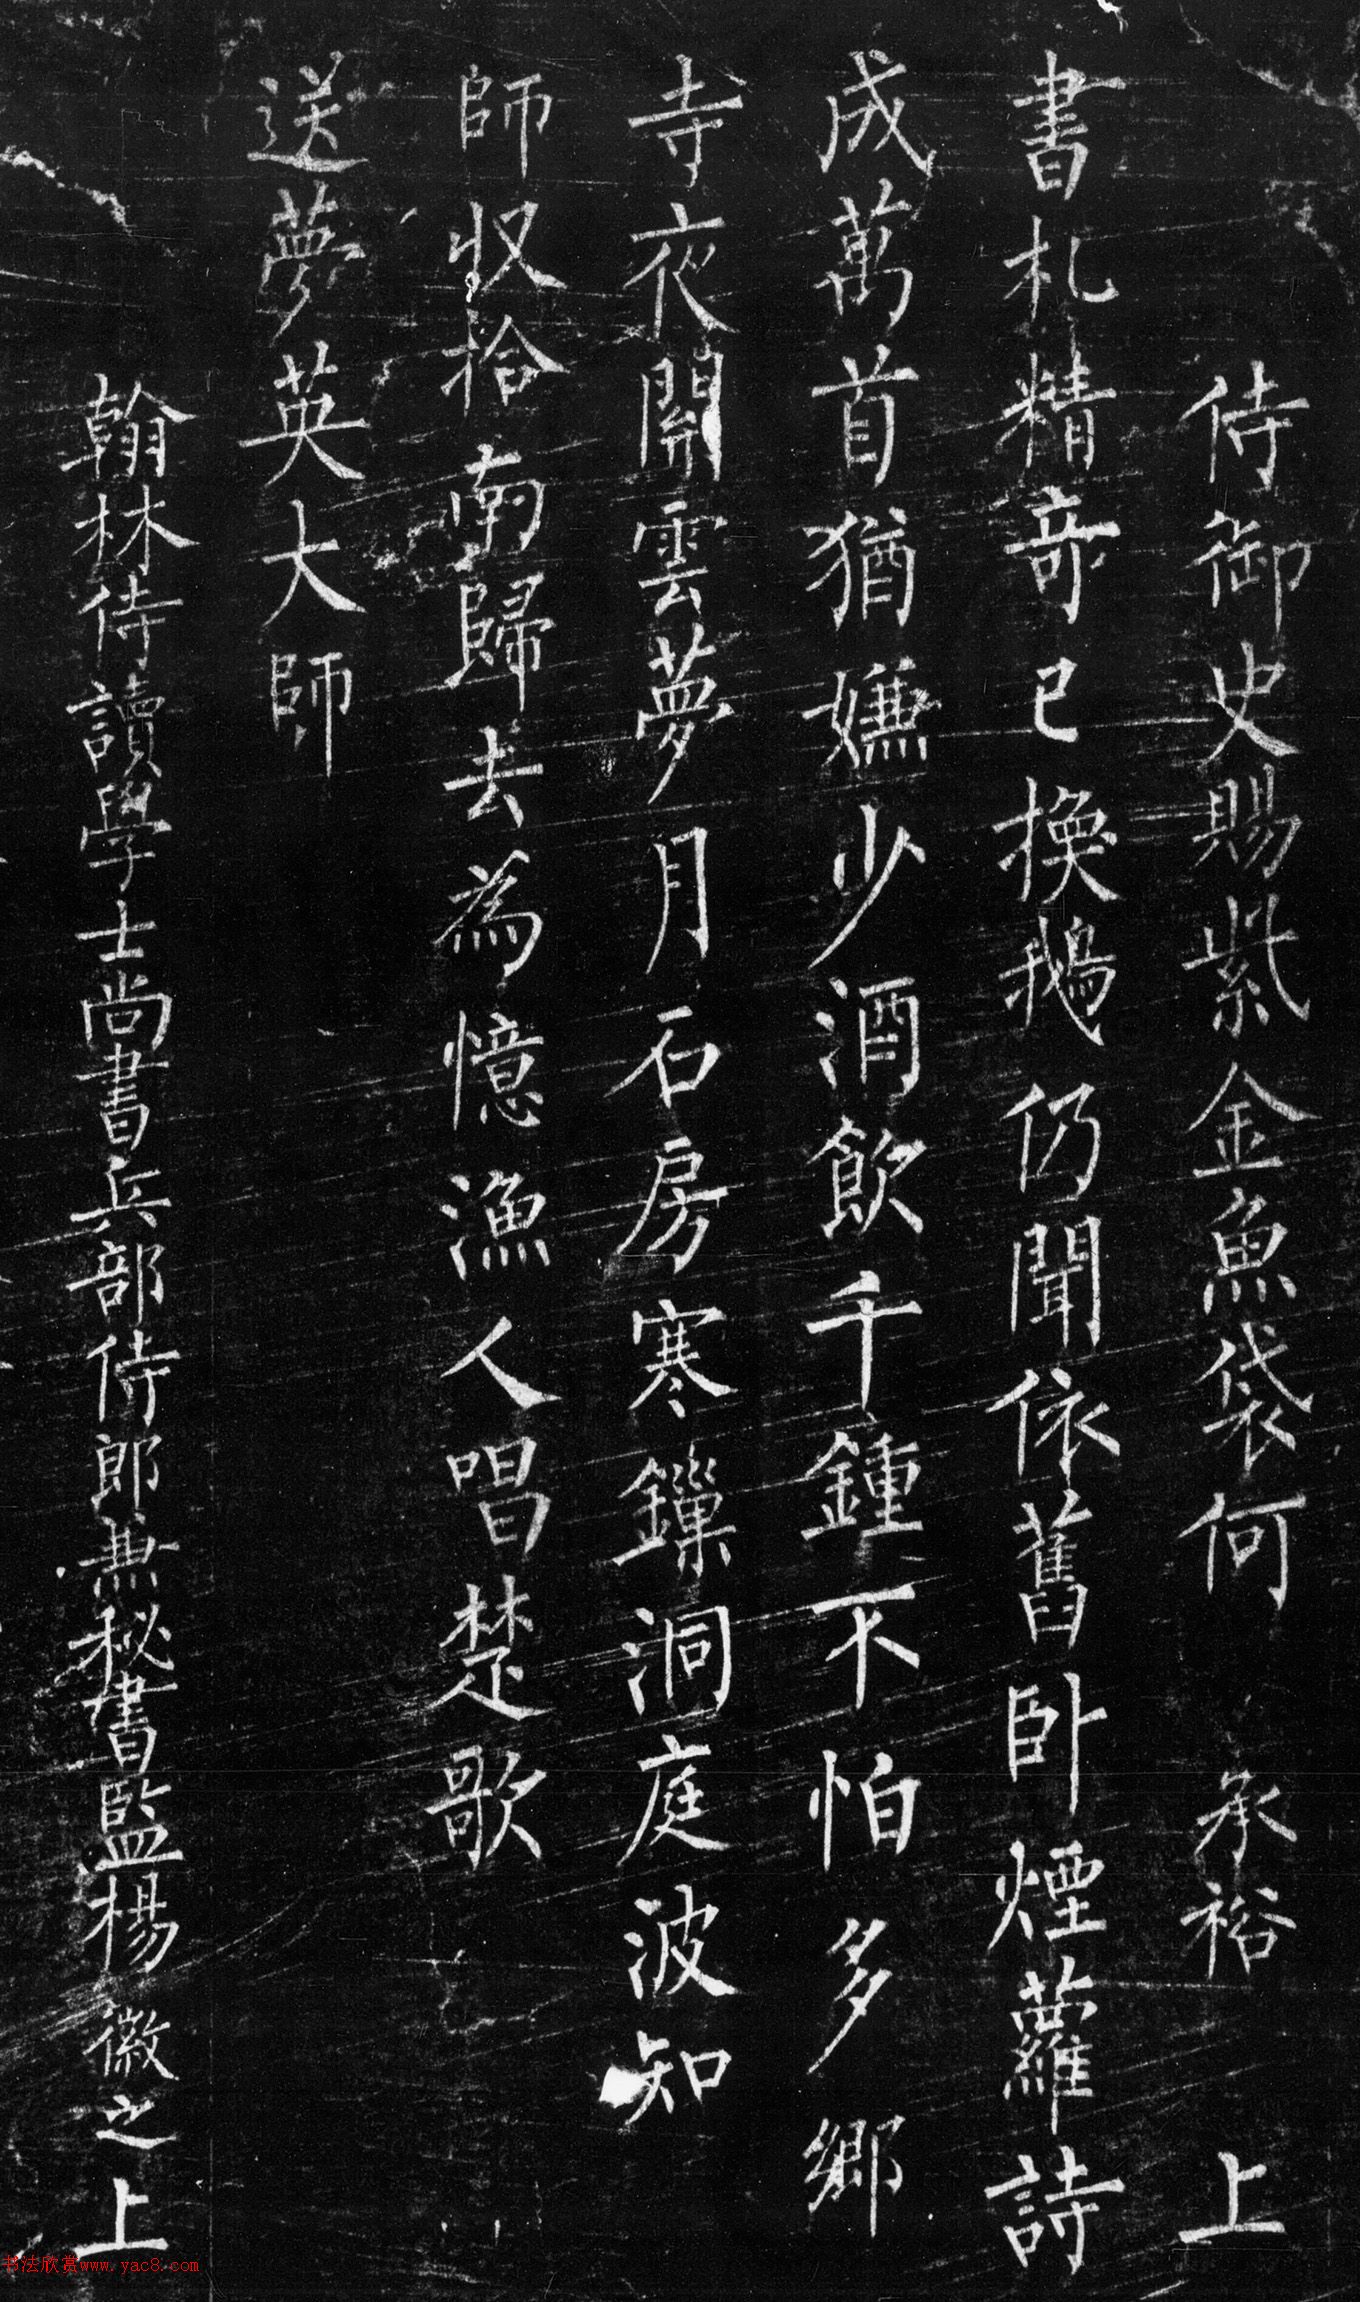 侍御史賜紫金魚袋何 承裕 上
書札精奇已換鵝仍聞依舊卧煙蘿詩
成萬首猶嫌少酒飲千鍾不怕多鄉
寺夜開雲夢月石房寒鏁洞庭波知
師収拾南歸去為憶漁人唱楚歌
送夢英大師
翰林侍讀學士尚書兵部侍郎兼秘書監楊 徽之上
书法欣赏www.yac8.com